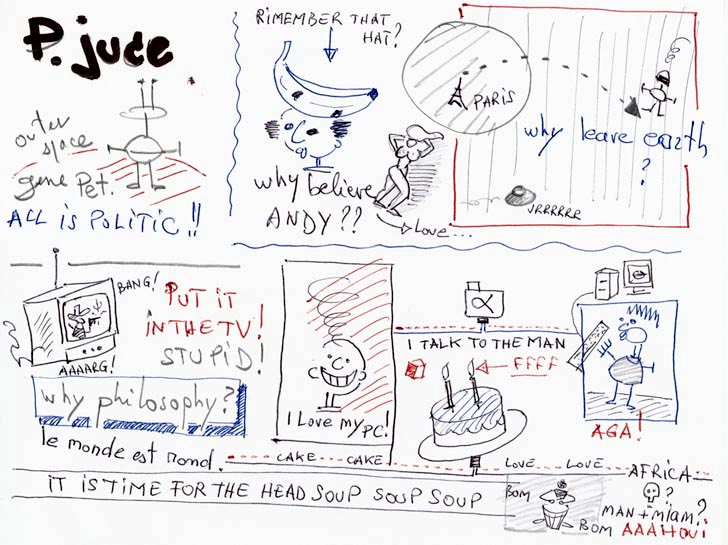 P. jude
RIMEMBER THAT
HAT?
PARIS
outer
space
gene Pet.
ALL IS POLITIC!!
why believe
ANDY??
Love...
why leave earth
?
VRRRRRR
BANG!
PUT IT
IN THE TV!
STUPID!
AAAARG!
why philosophy?
le monde est rond.
I LOVE MY PC!
α
I TALK TO THE MAN
FFFF
AGA!
CAKE... CAKE
LOVE... LOVE... AFRICA
IT IS TIME FOR THE HEAD SOUP SOUP SOUP
BOM
BOM
?
MAN + miam?